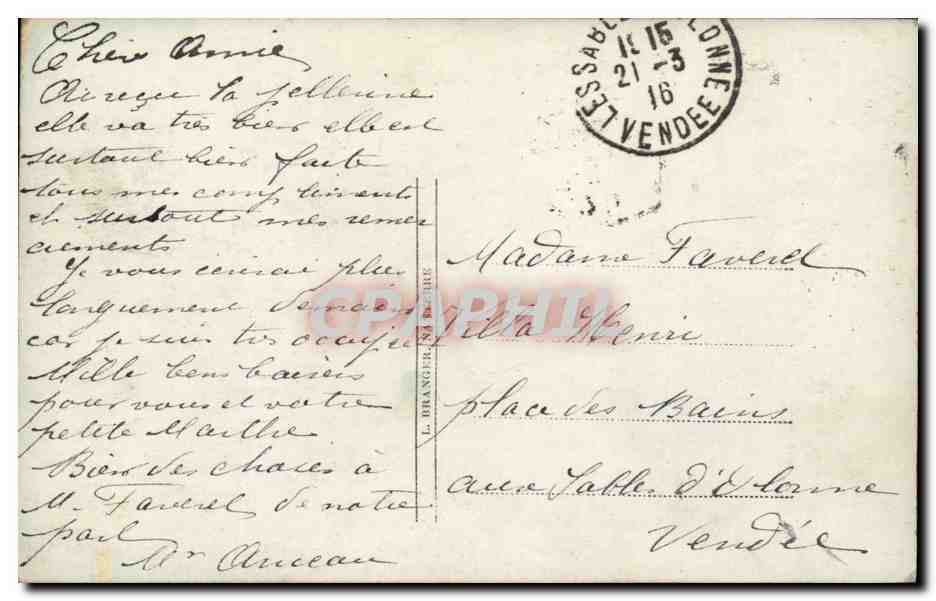 Chère Amie
Ai reçu la pellerine
elle va très bien elle est
surtout bien faite
tous mes compliments
et surtout mes remer
ciements
Je vous écrirai plus
longuement demain
car je suis très occupé
Mille bons baisers
pour vous et votre
petite Marthe
Bien des choses à
M. Faverel de notre
part
Mr Anceau
L. BRANGER, NANTERRE
LES SABLES D'OLONNE
15
21-3
16
VENDEE
Madame Faverel
Villa Henri
place des Bains
aux Sables d'Olonne
Vendée
CPAPHIL